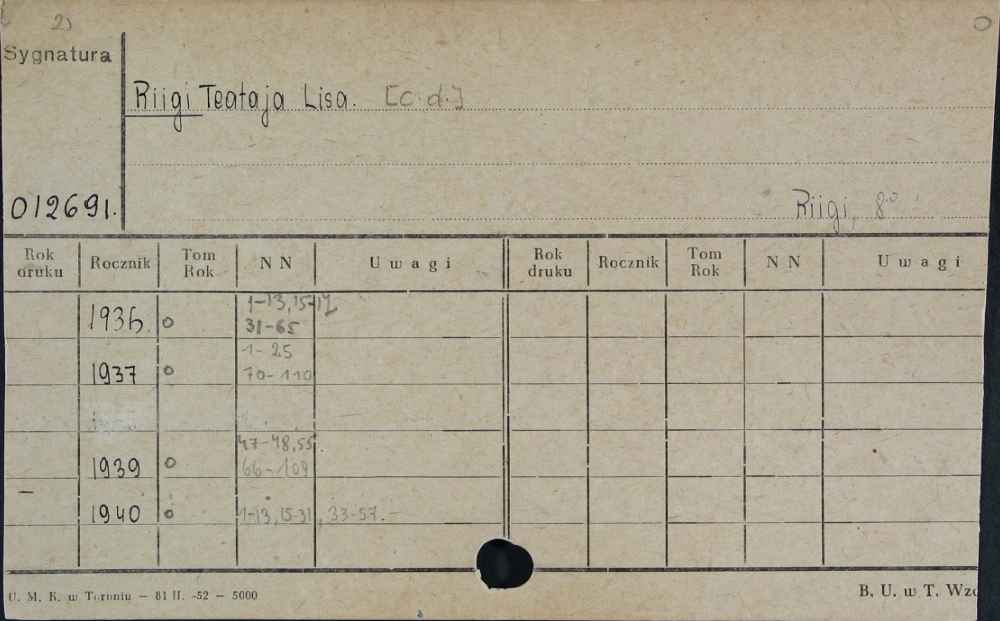 2)
Sygnatura
Riigi Teataja Lisa. [c.d.]
012691.
Riigi, 8°
Rok druku Rocznik Tom Rok NN Uwagi Rok druku Rocznik Tom Rok NN Uwagi
1-13, 15-17
1936. o 31-65
1-25
1937 o 70-110
47-48, 55.
1939 o 66-109
1940 o 1-13, 15-31, 33-57.-
U. M. K. w Toruniu — 81 II. -52 — 5000
B. U. w T. Wzó